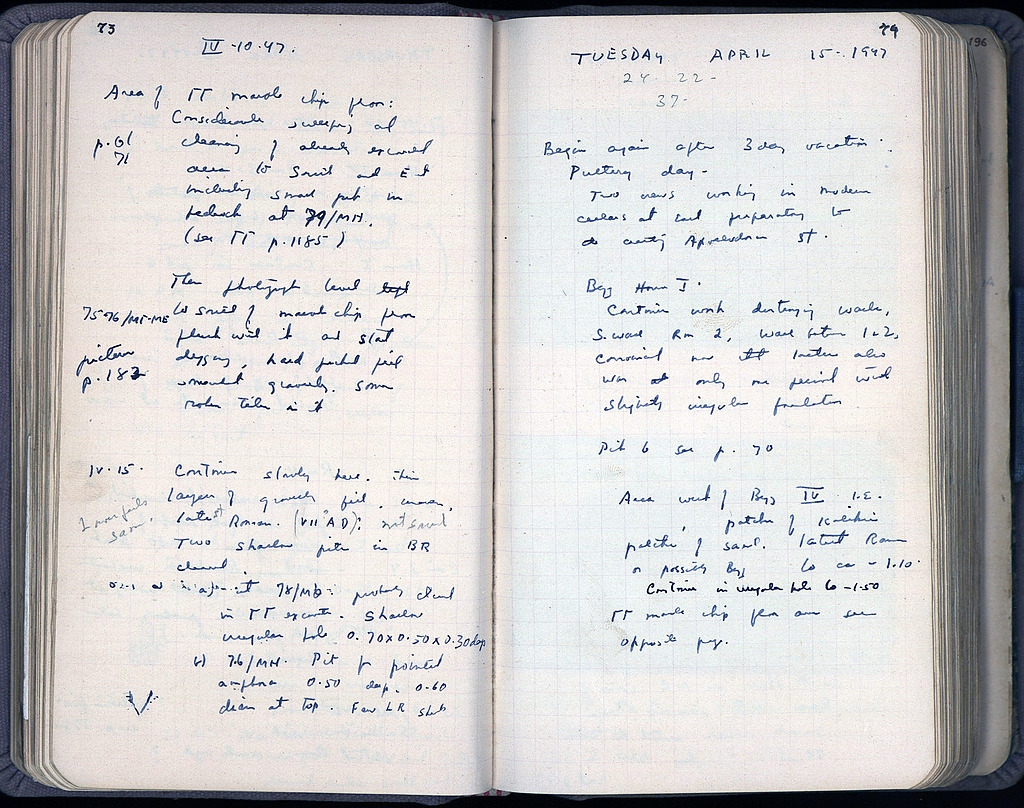 73
IV-10-47.
Area of TT marble chip floor:
Considerable sweeping and
p. 61
71
cleaning of already excavated
area to South and East
including small pit in
bedrock at 79/MH.
(see TT p. 1185)
Then photograph level
75-76/ME-ME
to south of marble chip floor
flush with it and start
digging, hard packed fill
picture
p. 183
somewhat gravelly. Some
roof tiles in it
IV-15. Continue slowly here. Thin
layer of gravelly fill,
latest Roman. (VII AD): not saved
1 more
same.
Two shallow pits in BR
cleared.
at 78/MD: probably cleared
in TT excavation. Shallow
irregular hole 0.70x0.50x0.30 deep
b) 76/MH. Pit for pointed
amphora 0.50 deep. 0.60
diam at top. Few LR sherds
74
196
TUESDAY APRIL 15-1947
24 22-
37-
Begin again after 3 day vacation.
Puttering day-
Two crews working in modern
cellars at east preparatory to
cutting Apollodorou St.
Byz House I.
Continue work destroying walls,
S. wall Rm 2, wall between 1 & 2,
convinced now latter also
was only one period with
slightly irregular foundation
Pit 6 see p. 70
Area west of Byz IV i.e.
patches of
patches of sand. latest Roman
or possibly Byz to ca -1.10.
Continue in irregular hole to -1.50
TT marble chip floor area see
opposite page.